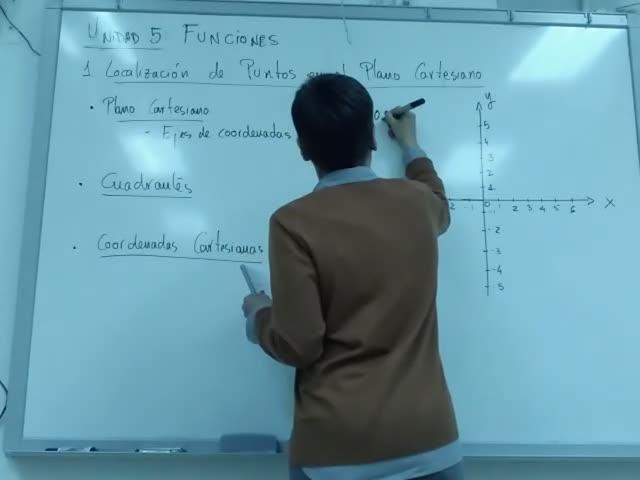 UNIDAD 5 FUNCIONES
1 Localización de Puntos en el Plano Cartesiano
• Plano Cartesiano
- Ejes de coordenadas
• Cuadrantes
• Coordenadas Cartesianas
y
5
4
3
2
1
-2 -1 0 1 2 3 4 5 6 x
-2
-4
-5